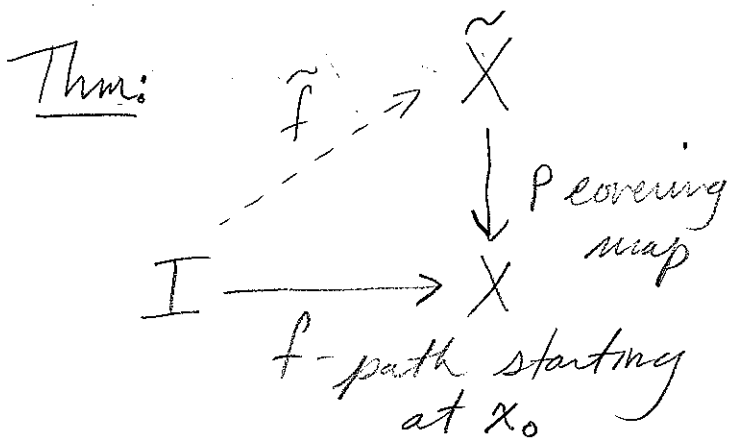 Thm:
X̃
f̃
p covering
map
I
X
f - path starting
at x₀